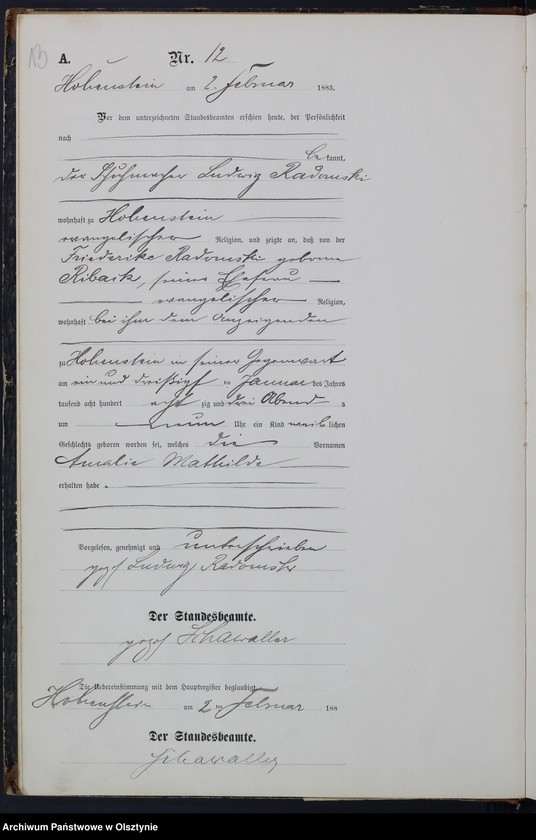 A.
Nr. 12
Hohenstein am 2. Februar 1883.
Vor dem unterzeichneten Standesbeamten erschien heute, der Persönlichkeit
nach
be kannt,
der Schuhmacher Ludwig Radomski
wohnhaft zu Hohenstein
evangelischer Religion, und zeigte an, daß von der
Friederike Radomski geborne
Riback, seiner Ehefrau
evangelischer Religion,
wohnhaft bei ihm dem Anzeigenden
zu Hohenstein in seiner Gegenwart
am ein und dreißigst en Januar des Jahres
tausend acht hundert acht zig und drei Abend s
um neun Uhr ein Kind weib lichen
Geschlechts geboren worden sei, welches die Vornamen
Amalie Mathilde
erhalten habe.
Vorgelesen, genehmigt und unterschrieben
gez. Ludwig Radomski
Der Standesbeamte.
gez. Schawaller
Die Uebereinstimmung mit dem Hauptregister beglaubigt
Hohenstein am 2 en Februar 188
Der Standesbeamte.
Schawaller
Archiwum Państwowe w Olsztynie